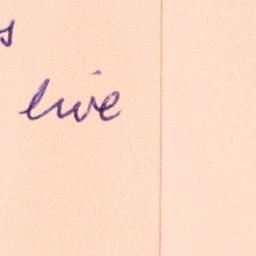 s
live